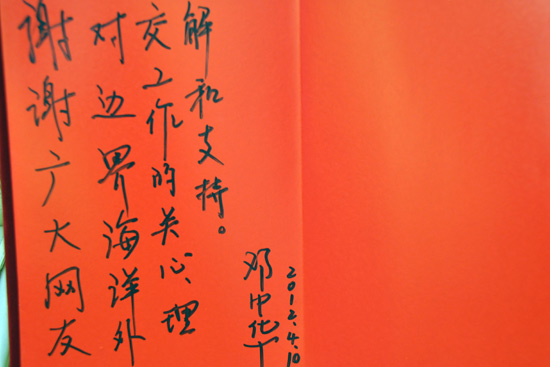 谢谢广大网友
对边界海洋外
交工作的关心、理
解和支持。
邓中华
2012.4.10